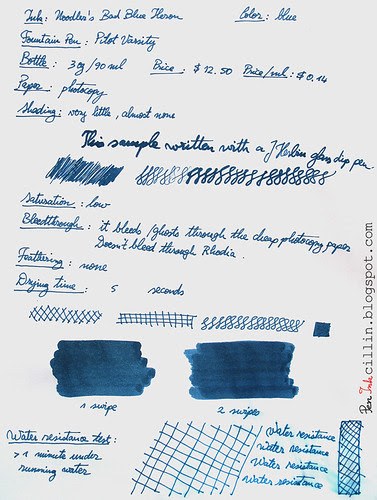 Ink: Noodler's Bad Blue Heron Color: blue
Fountain Pen: Pilot Varsity
Bottle: 3 oz/90 ml Price: $ 12.50 Price/ml: $ 0.14
Paper: photocopy
Shading: very little, almost none
This sample written with a J Herbin glass dip pen.
Saturation: low
Bleedthrough: it bleeds/ghosts through the cheap photocopy paper
Doesn't bleed through Rhodia.
Feathering: none
Drying time: 5 seconds
1 swipe
2 swipes
Water resistance test:
> 1 minute under
running water
Water resistance
Water resistance
Water resistance
Water resistance
Pen Ink cillin.blogspot.com